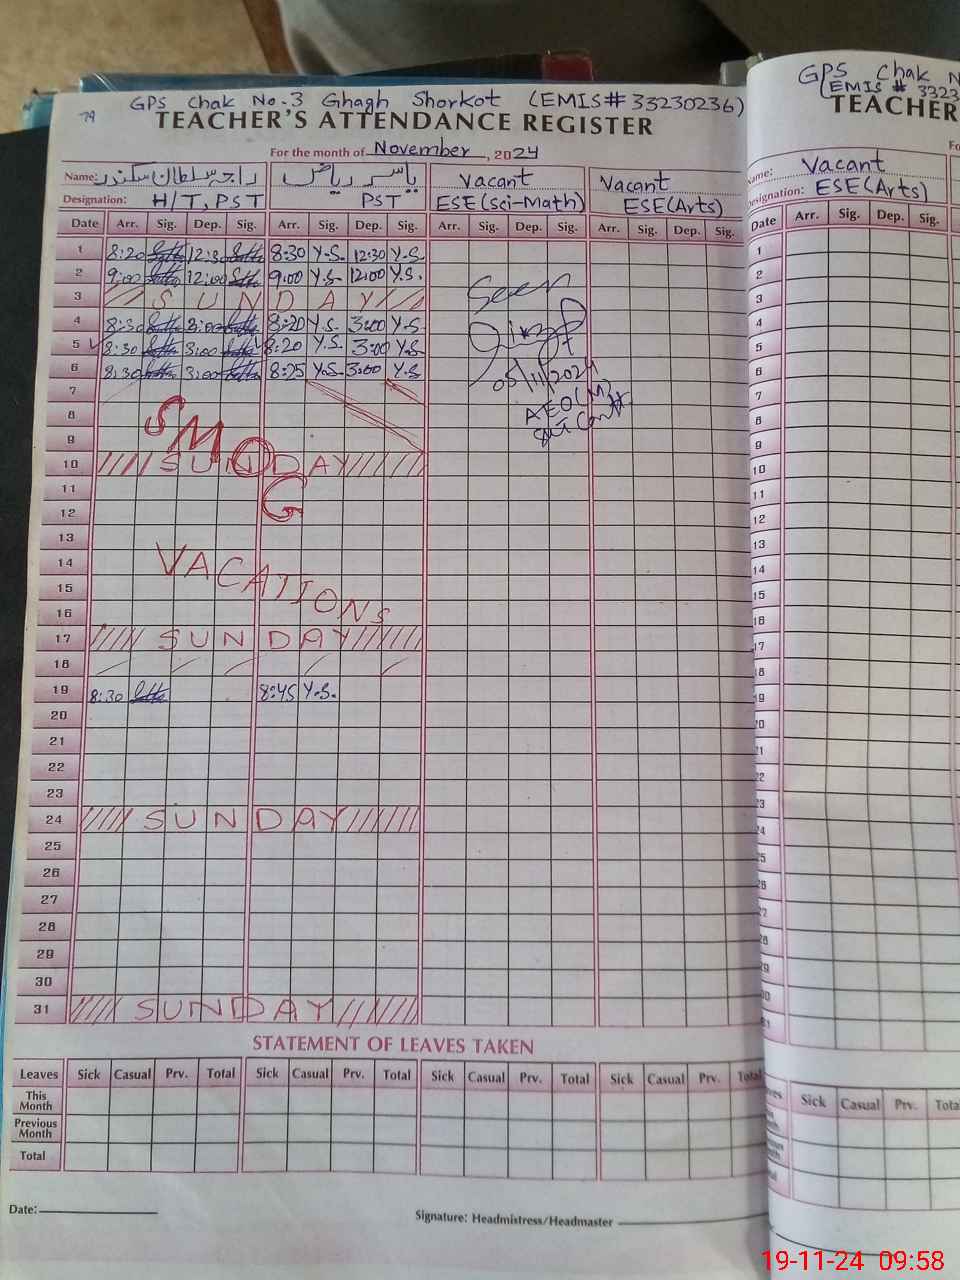 79 GPS Chak No.3 Ghagh Shorkot (EMIS# 33230236)
TEACHER'S ATTENDANCE REGISTER
For the month of November, 2024
Name: راجہ سلطان سکندر یاسر ریاض Vacant Vacant
Designation: H/T, PST PST ESE(Sci-Math) ESE(Arts)
Date Arr. Sig. Dep. Sig. Arr. Sig. Dep. Sig. Arr. Sig. Dep. Sig. Arr. Sig. Dep. Sig.
1 8:20 12:30 8:30 Y.S. 12:30 Y.S.
2 9:00 12:00 9:00 Y.S. 12:00 Y.S.
3 SUNDAY
Seen
4 8:30 3:00 8:20 Y.S. 3:00 Y.S.
5 8:30 3:00 8:20 Y.S. 3:00 Y.S.
6 8:30 3:00 8:25 Y.S. 3:00 Y.S.
05/11/2024
7
AEO(M)
8
SMOG
9
10 SUNDAY
11
12
13
14
VACATIONS
15
16
17 SUNDAY
18
19 8:30 8:45 Y.S.
20
21
22
23
24 SUNDAY
25
26
27
28
29
30
31 SUNDAY
STATEMENT OF LEAVES TAKEN
Leaves Sick Casual Prv. Total Sick Casual Prv. Total Sick Casual Prv. Total Sick Casual Prv. Total
This Month
Previous Month
Total
Date:
Signature: Headmistress/Headmaster
GPS Chak N
(EMIS # 3323
TEACHER
Fo
Name: Vacant
Designation: ESE(Arts)
Date Arr. Sig. Dep. Sig.
1
2
3
4
5
6
7
8
9
10
11
12
13
14
15
16
17
18
19
20
21
22
23
24
25
26
27
28
29
30
31
Sick Casual Prv. Tota
19-11-24 09:58